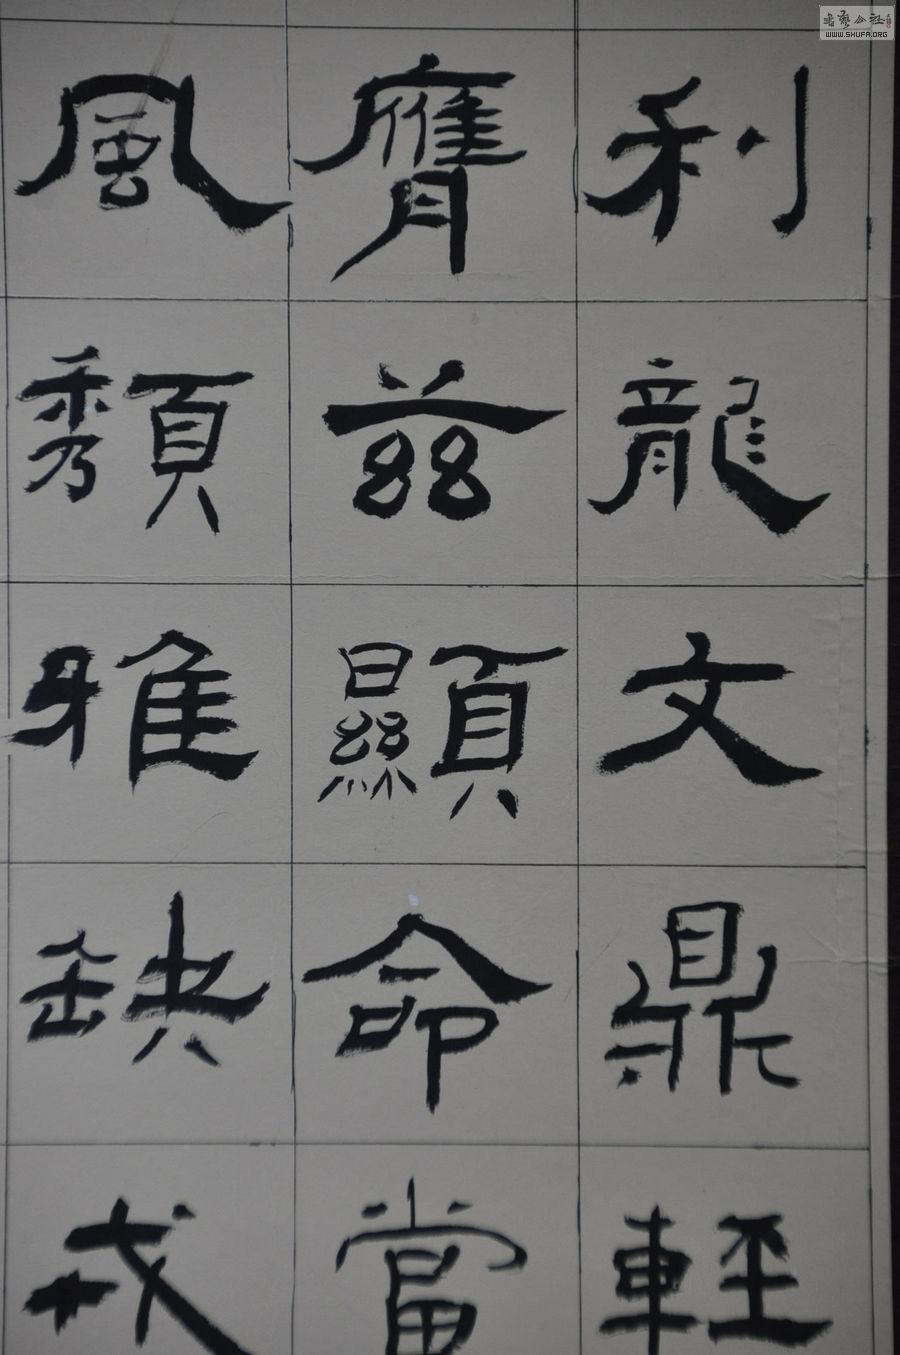 利龍文鼎輕
膺茲顯命當
風頽雅缺戎
書藝公社
WWW.SHUFA.ORG